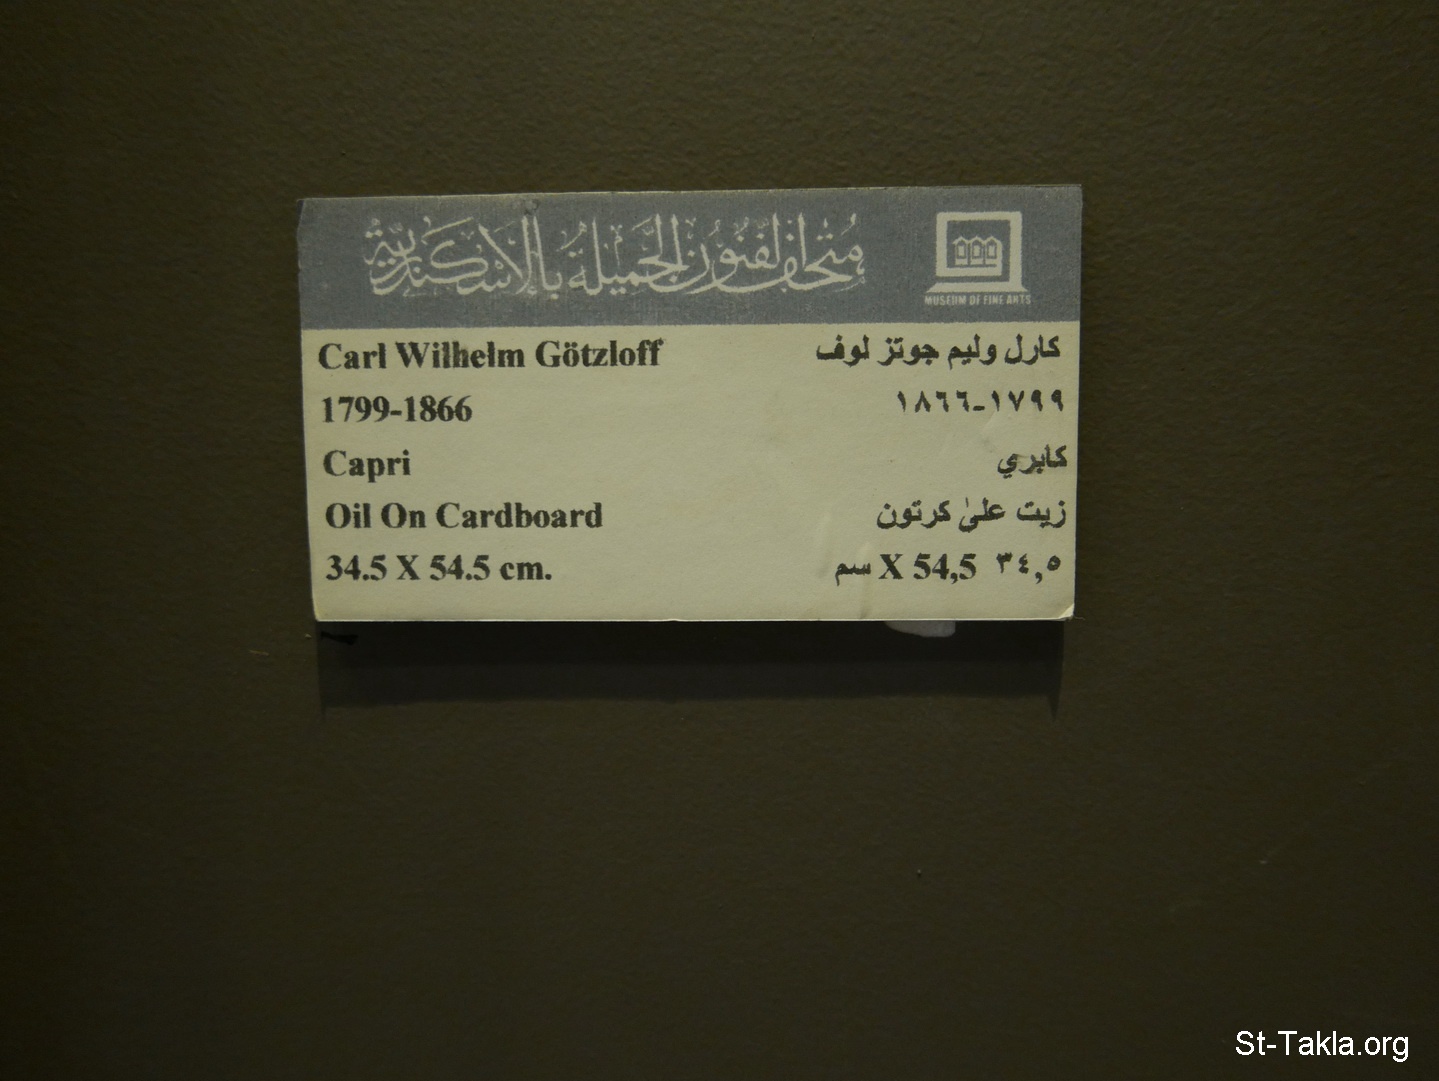 متحف الفنون الجميلة بالإسكندرية
MUSEUM OF FINE ARTS
Carl Wilhelm Götzloff
كارل وليم جوتز لوف
1799-1866
١٧٩٩-١٨٦٦
Capri
كابري
Oil On Cardboard
زيت علىٰ كرتون
34.5 X 54.5 cm.
٣٤,٥ X 54,5 سم
St-Takla.org